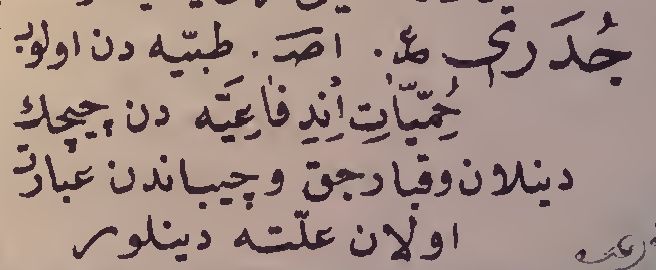 جُدَرِیّ ع. اص. طبیّه دن اولوب
حُمِّیَّاتِ اُندِفَاعِیَّه دن چیچك
دینلان وقبارجق وچیباندن عبارت
اولان علّته دینلور